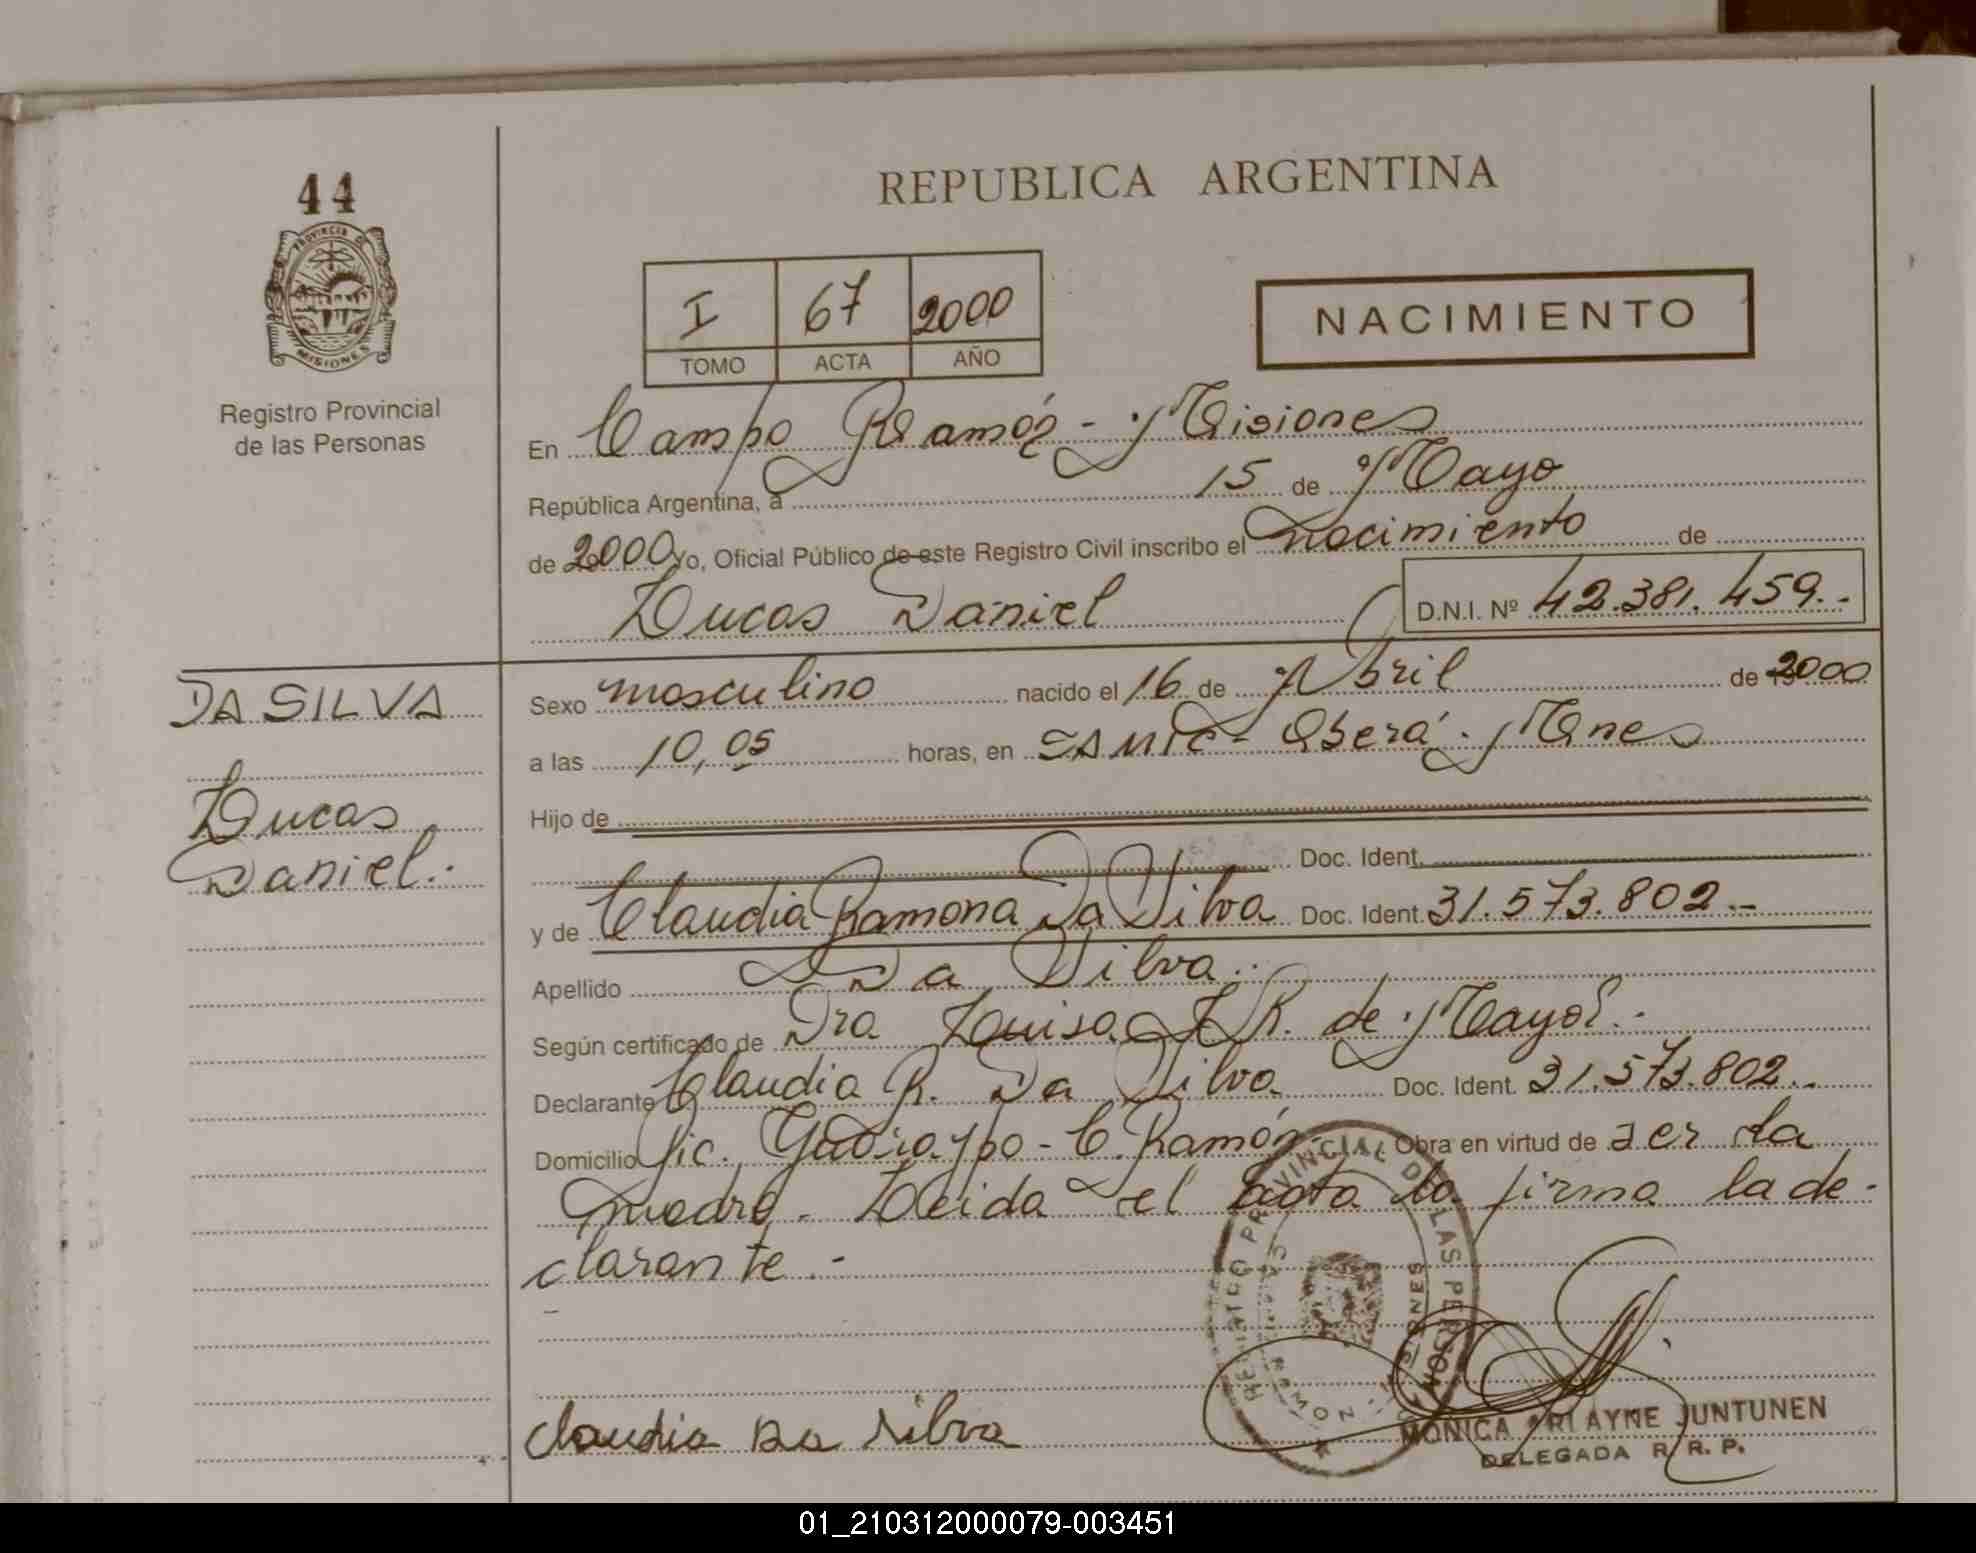 44
PROVINCIA DE
MISIONES
Registro Provincial
de las Personas
REPUBLICA ARGENTINA
I 67 2000
TOMO ACTA AÑO
NACIMIENTO
En Campo Ramón - Misiones
República Argentina, a 15 de Mayo
de 2000 Yo, Oficial Público de este Registro Civil inscribo el nacimiento de
Lucas Daniel D.N.I. Nº 42.381.459.-
DA SILVA
Lucas
Daniel.-
Sexo masculino nacido el 16 de Abril de 2000
a las 10,05 horas, en SAMIC - Oberá - Mnes
Hijo de
Doc. Ident.
y de Claudia Ramona Da Silva Doc. Ident. 31.573.802.-
Apellido Da Silva.-
Según certificado de Dra Luisa R. de Mayol.-
Declarante Claudia R. Da Silva Doc. Ident. 31.573.802.-
Domicilio Pic. - C. Ramón. Obra en virtud de ser la
madre. Leida el acta la firma la de-
clarante.-
REGISTRO PROVINCIAL DE LAS PERSONAS
MISIONES
RAMON
Claudia Da Silva
MONICA ARLAYNE JUNTUNEN
DELEGADA R. R. P.
01_210312000079-003451